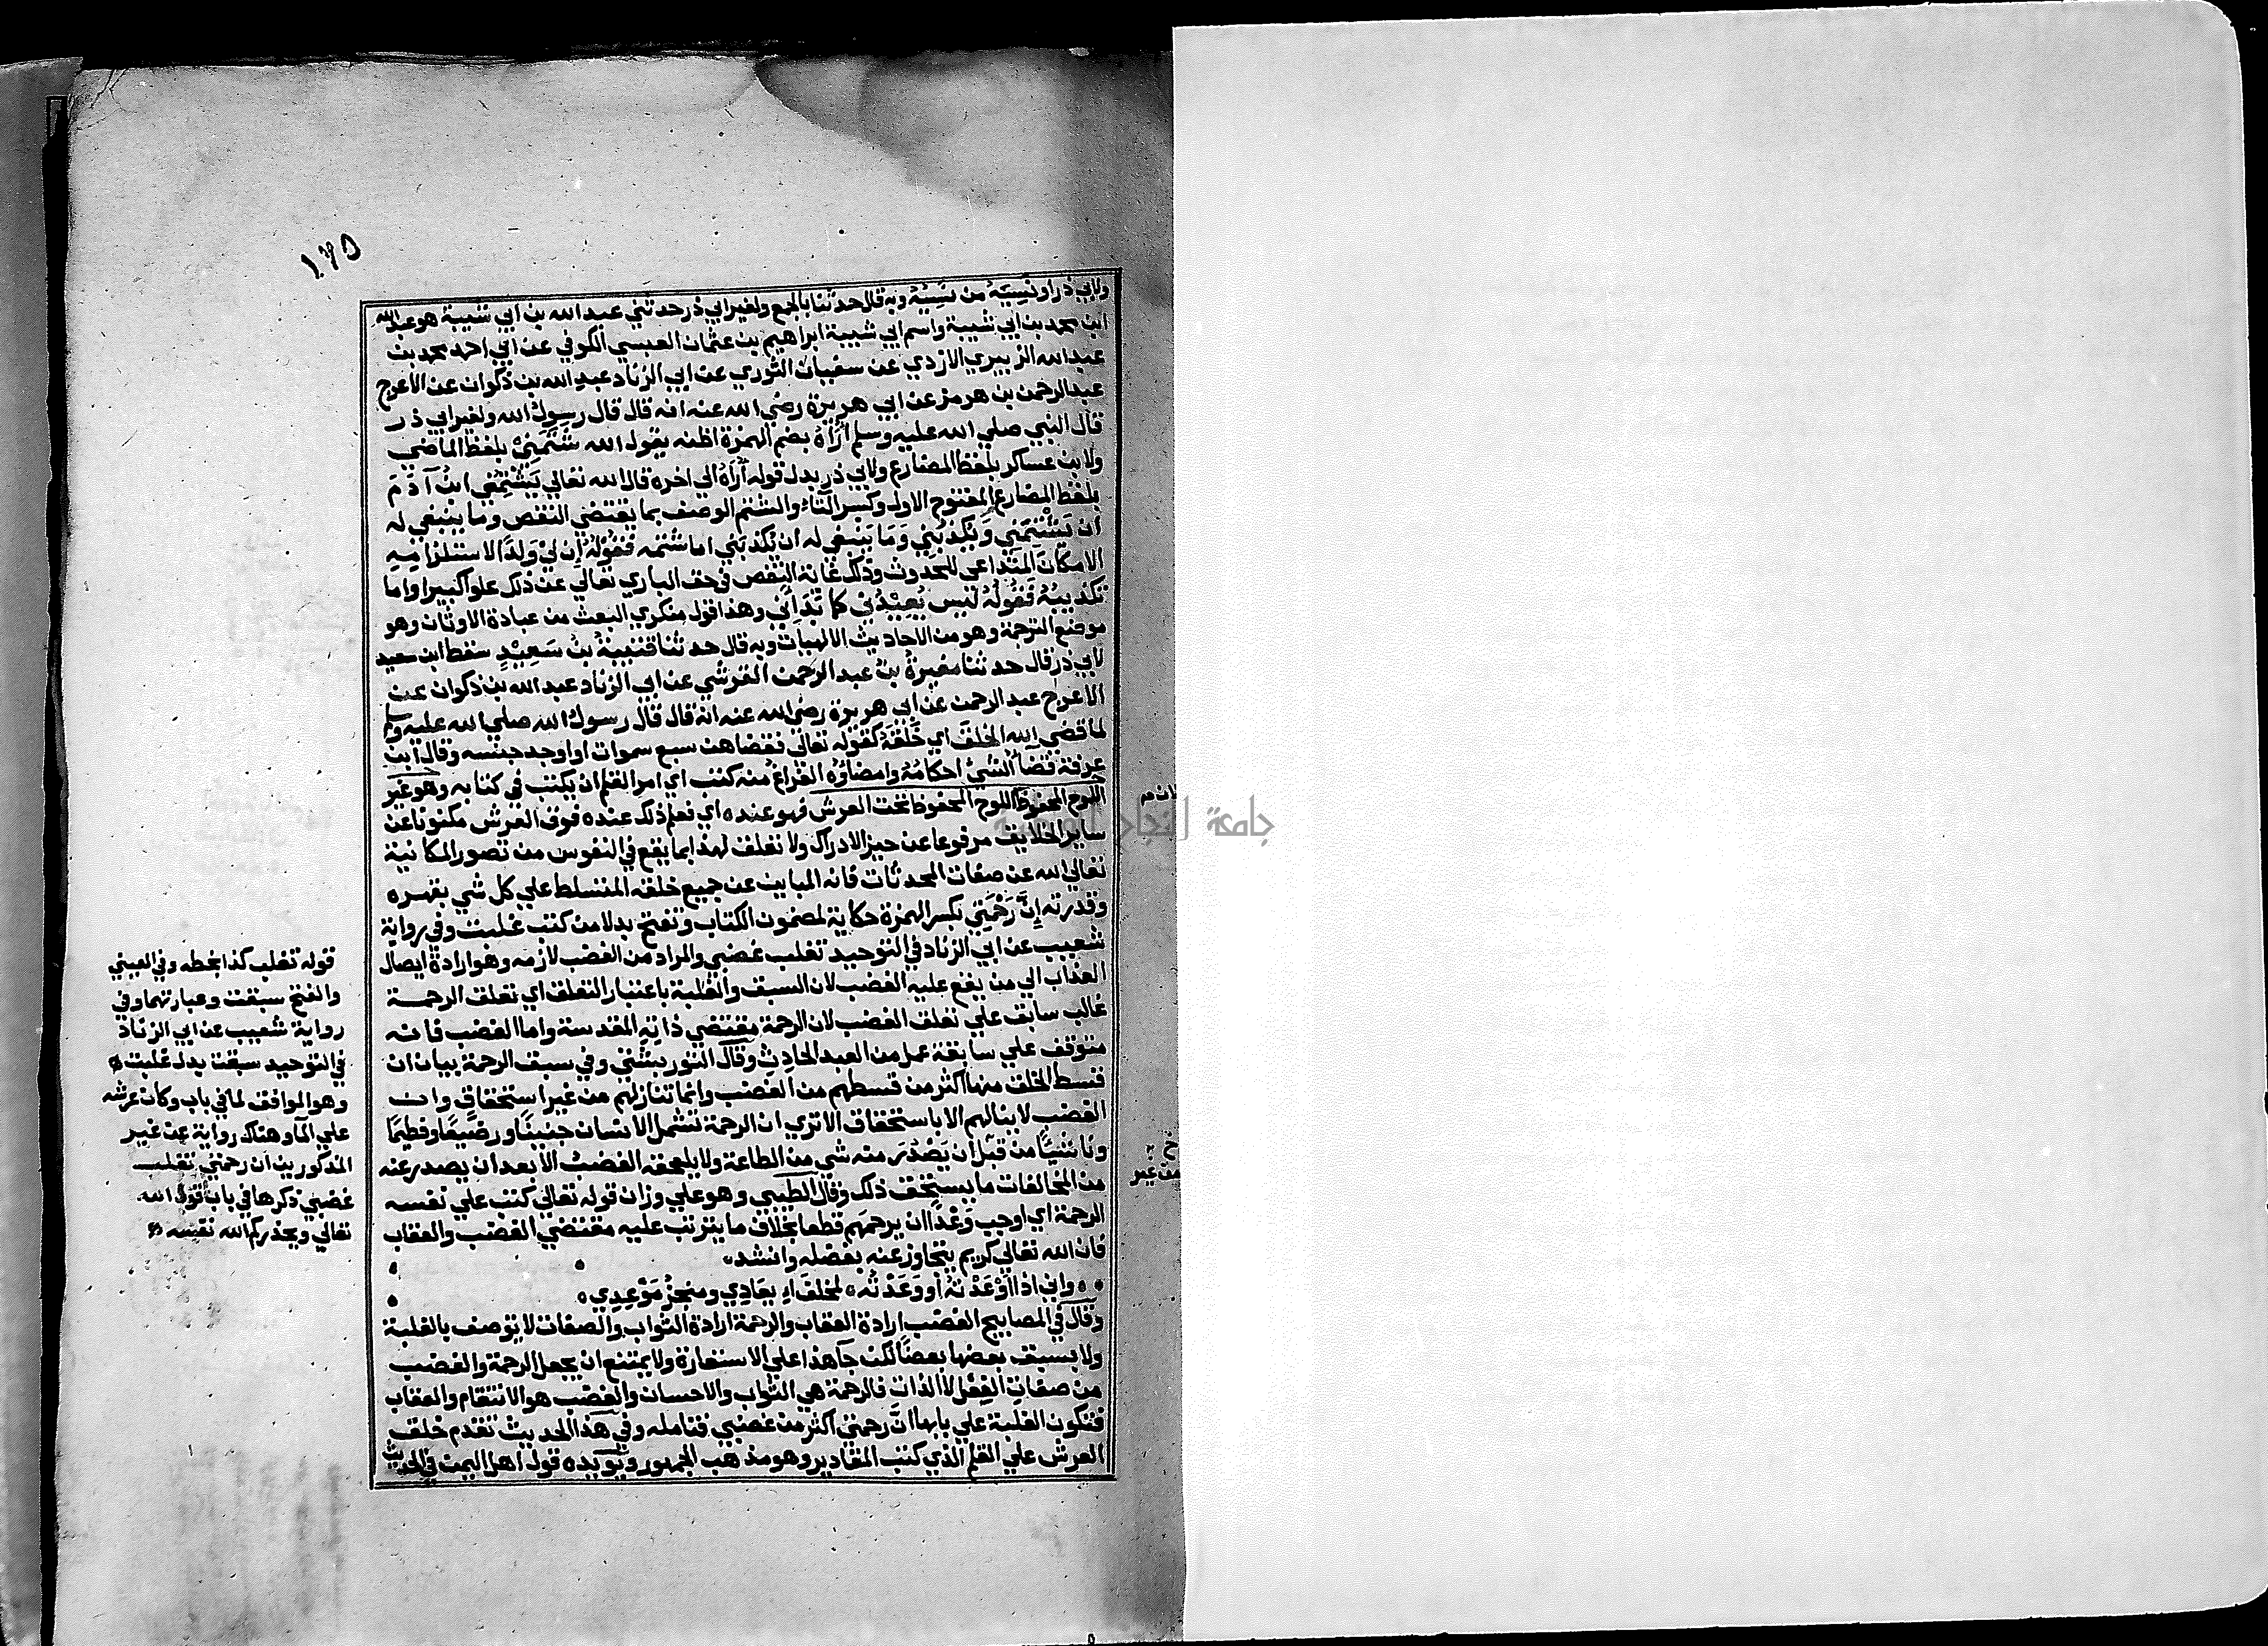 ١٧٥
ولابي ذر او نسيه من نسيه وبه قال حدثنا بالجمع ولغير ابي ذر حدثني عبد الله بن ابي شيبة هو عبد الله
ابن محمد بن ابي شيبة واسم ابي شيبة ابراهيم بن عثمان العبسي الكوفي عن ابي احمد محمد بن
عبد الله الزبيري الازدي عن سفيان الثوري عن ابي الزناد عبد الله بن ذكوان عن الاعرج
عبد الرحمن بن هرمز عن ابي هريرة رضي الله عنه انه قال قال رسول الله ولغير ابي ذر
قال النبي صلي الله عليه وسلم أُرَاهُ بضم الهمزة اظنه يقول الله شَتَمَنِيْ بلفظ الماضي
ولابن عساكر بلفظ المضارع ولابي ذر بدل قوله أُراهُ الي اخره قال الله تعالي يَشْتِمُنِي ابنُ آدَمَ
بلفظ المضارع المفتوح الاول وكسر التاء والشتم الوصف بما يقتضي النقص وما ينبغي له
ان يَشْتِمَنِي وَيُكَذِّبُنِي وَمَا يَنْبَغِي له ان يُكَذِّبَنِي اما شتمه فَقَوْلُهُ إن لِيْ وَلَدًا لاستلزامه
الامكان المتداعي للحدوث وذلك غاية النقص في حق الباري تعالي عن ذلك علوا كبيرا واما
تكذيبُهُ فَقَوْلُهُ لَيس يُعِيْدُنِيْ كما بَدَأنِي وهذا قول منكري البعث من عبادة الاوثان وهو
موضع الترجمة وهو من الاحاديث الالهيات وبه قال حدثنا قتيبةُ بْنُ سَعِيْدٍ سقط ابن سعيد
لابي ذر قال حدثنا مغيرةُ بنُ عبد الرحمن القرشي عن ابي الزناد عبد الله بن ذكوان عن
الاعرج عبد الرحمن عن ابي هريرة رضي الله عنه انه قال قال رسول الله صلي الله عليه وسلم
لما قضي الله الخلقَ اي خَلَقَهُ كقوله تعالي فقضاهن سبع سموات او اوجد جنسه وقال ابن
عرفة قضأُ الشيْ احكامُهُ وامضاؤُه الفراغُ منه كتب اي امر القلم ان يكتب في كتابه وهو غير
اللوح المحفوظ اللوح المحفوظ تحت العرش فهو عنده اي فعلم ذلك عنده فوق العرش مكنونا عن
ساير الخلايق مرفوعا عن حيز الادراك ولا تعلق لهذا بما يقع في النفوس من تصور المكانية
تعالي الله عن صفات المحدثات فانه المباين عن جميع خلقه المتسلط علي كل شي بقهره
وقدرته إنَّ رَحْمَتِي بكسر الهمزة حكاية لمضمون الكتاب وتفتح بدلا من كتب غلبت وفي رواية
شعيب عن ابي الزناد في التوحيد تغلب غضبي والمراد من الغضب لازمه وهو ارادة ايصال
العذاب الي من يقع عليه الغضب لان السبق والغلبة باعتبار التعلق اي تعلق الرحمة
غالب سابق علي تعلق الغضب لان الرحمة مقتضي ذاتِهِ المقدسة واما الغضب فانه
متوقف علي سابقة عمل من العبد الحادِثِ وقال التوربشتي وفي سبق الرحمة بيان ان
قسط الخلق منها اكثر من قسطهم من الغضب وانها تنالهم من غير استحقاق وان
الغضب لا ينالهم الا باستحقاق الا تري ان الرحمة تشمل الانسان جنينًا ورضيعًا وفطيمًا
وناشئيًا من قبل ان يَصْدُرَ منه شي من الطاعة ولا يلحقه الغضبُ الا بعد ان يصدر عنه
من المخالفات ما يستحق ذلك وقال الطيبي وهو علي وزان قوله تعالي كتب علي نفسه
الرحمة اي اوجب وَعْدًا ان يرحمَهم قطعا بخلاف ما يترتب عليه مقتضي الغضب والعقاب
فان الله تعالي كريم يتجاوز عنه بفضله وانشد
واني اذا أَوْعَدْتهُ او وَعَدْتُه لمخلفُ ايعَادِي ومنجزُ مَوْعِدِي
وقال في المصابيح الغضب ارادة العقاب والرحمة ارادة الثواب والصفات لا توصف بالغلبة
ولا يسبق بعضها بعضًا لكن جآ هذا علي الاستعارة ولا يمتنع ان يجعل الرحمة والغضب
من صفات الفِعْل لا الذات فالرحمة هي الثواب والاحسان والغضب هو الانتقام والعقاب
فتكون الغلبة علي بابها انَّ رحمتي اكثر من غضبي فتامله وفي هذا الحديث تقدم خلق
العرش علي القلم الذي كتب المقادير وهو مذهب الجمهور ويُويده قول اهل اليمن في الحديث
قوله تغلب كذا بخطه وفي العيني
والفتح سبقت وعبارتهما وفي
رواية شعيب عن ابي الزناد
في التوحيد سبقت بدل غلبت
وهو الموافق لما في باب وكان عرشه
علي المآ وهناك رواية عن غير
المذكورين ان رحمتي تغلب
غضبي ذكرها في باب قول الله
تعالي ويحذركم الله نفسه
من غير
جامعة النجاح الوطنية